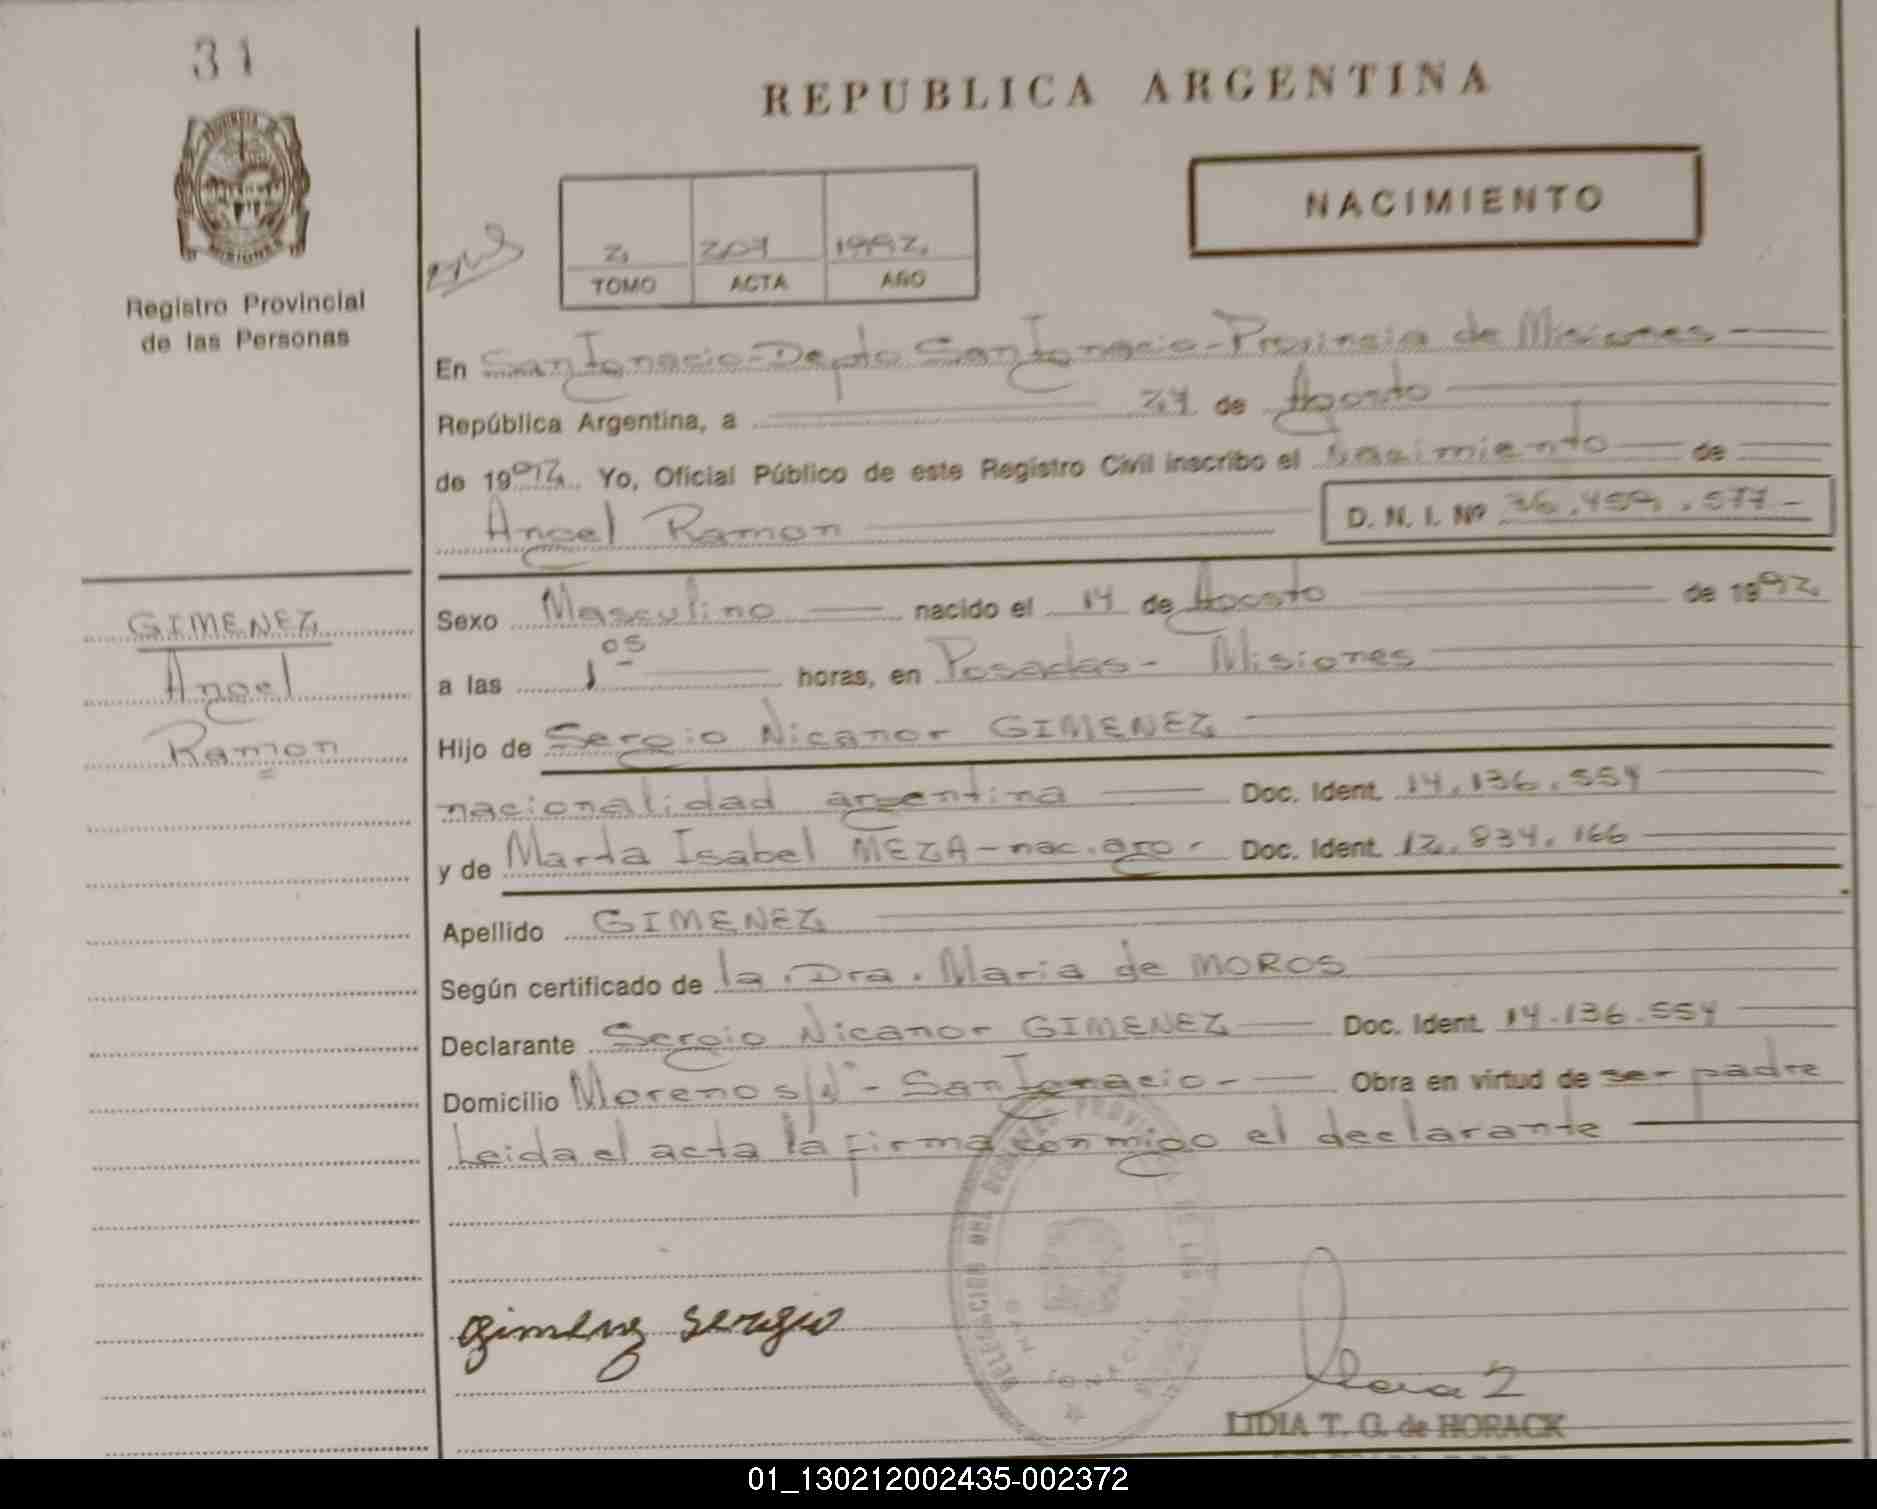 31
REPUBLICA ARGENTINA
NACIMIENTO
2 207 1992
TOMO ACTA AÑO
Registro Provincial
de las Personas
En San Ignacio - Depto San Ignacio - Provincia de Misiones
República Argentina, a 27 de Agosto
de 1992 Yo, Oficial Público de este Registro Civil inscribo el nacimiento de
Angel Ramon D. N. I. Nº 36.459.577-
GIMENEZ
Angel
Ramon
Sexo Masculino nacido el 14 de Agosto de 1992
a las 1 05 horas, en Posadas - Misiones
Hijo de Sergio Nicanor GIMENEZ
nacionalidad argentina Doc. Ident. 14.136.554
y de Marta Isabel MEZA - nac. arg. Doc. Ident. 12.834.166
Apellido GIMENEZ
Según certificado de la Dra. Maria de MOROS
Declarante Sergio Nicanor GIMENEZ Doc. Ident. 14.136.554
Domicilio Moreno s/nº - San Ignacio - Obra en virtud de ser padre
Leida el acta la firma conmigo el declarante
Gimenez Sergio
LIDIA T. G. de HORACK
01_130212002435-002372